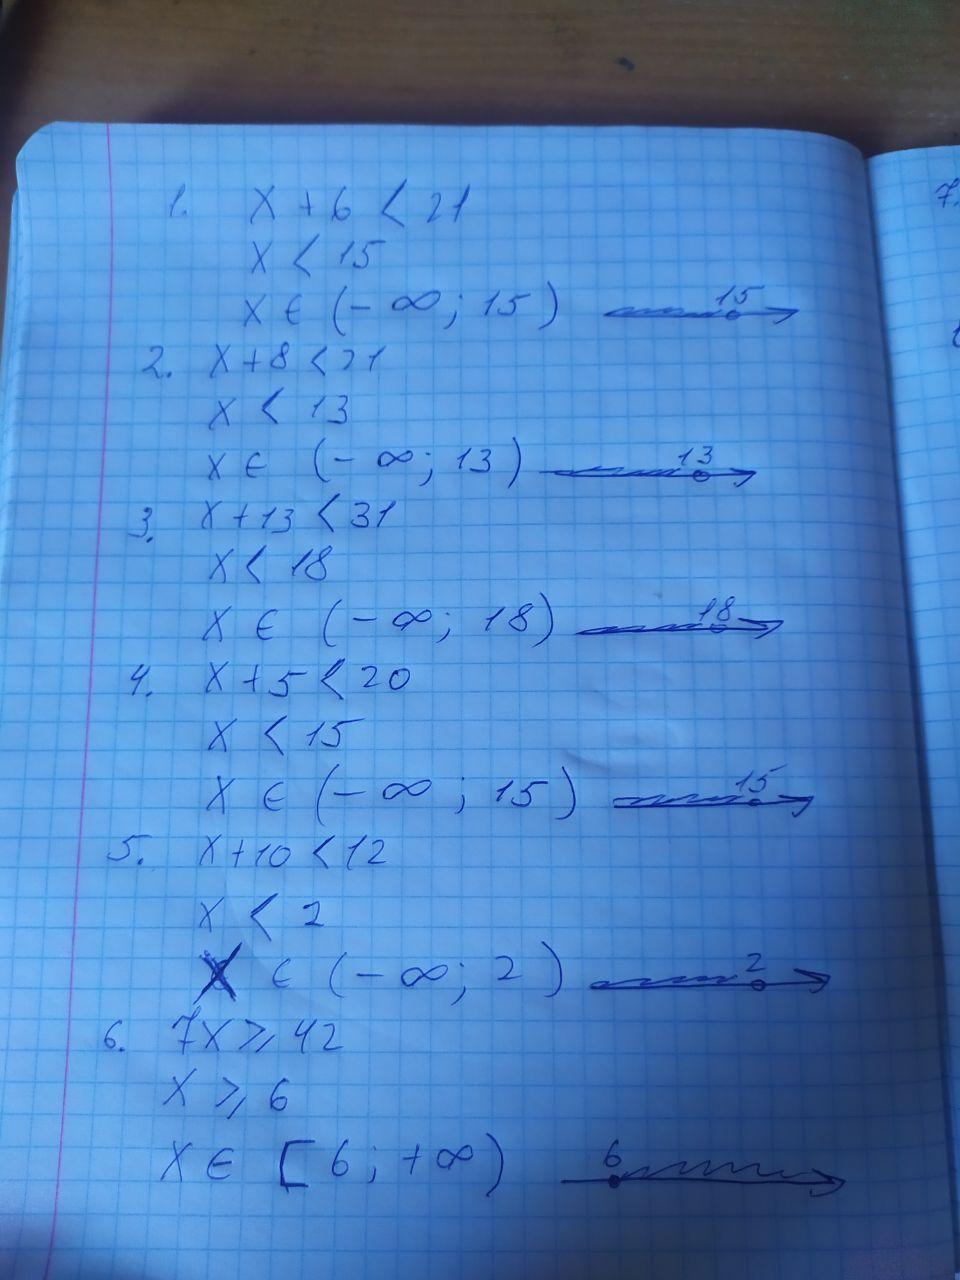 1. x + 6 < 21
x < 15
x ∈ (- ∞; 15) 15
2. x + 8 < 21
x < 13
x ∈ (- ∞; 13) 13
3. x + 13 < 31
x < 18
x ∈ (- ∞; 18) 18
4. x + 5 < 20
x < 15
x ∈ (- ∞; 15) 15
5. x + 10 < 12
x < 2
x ∈ (- ∞; 2) 2
6. 7x ⩾ 42
x ⩾ 6
x ∈ [6; +∞) 6
7.